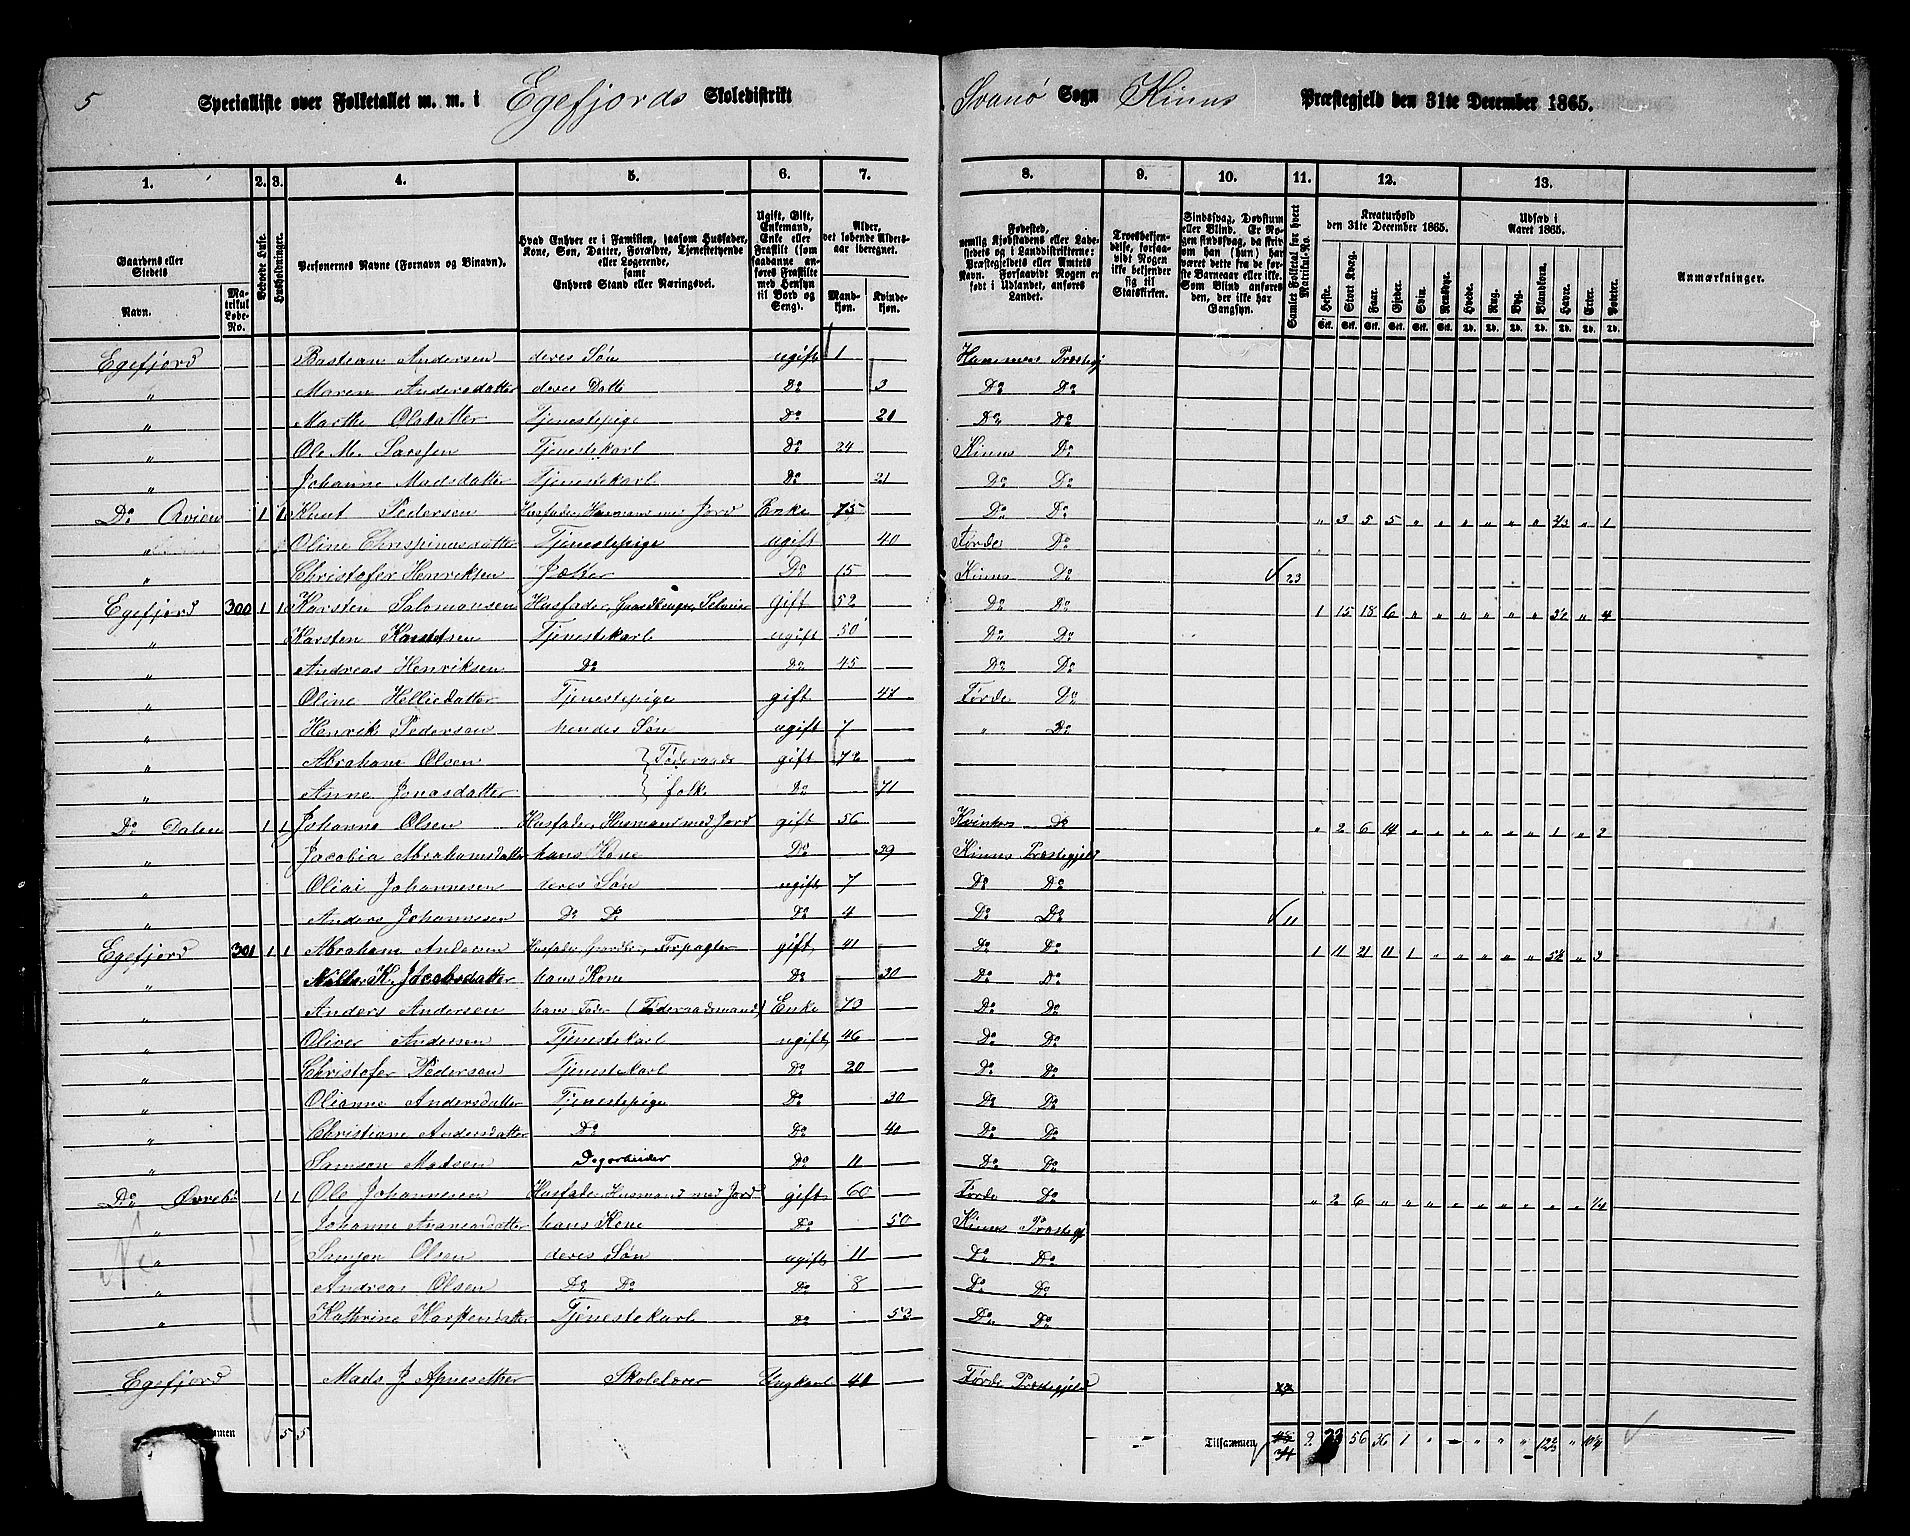 5 Specialliste over Folketallet m. m. i Egefjords Skoledistrikt Svanø Sogn Kinns Præstegjeld den 31te December 1865.
1. 2. 3. 4. 5. 6. 7. 8. 9. 10. 11. 12. 13.
Gaardens eller Stedets Navn. Matrikul Løbe-No. Bebоede Huse. Husholdninger. Personernes Navne (Fornavn og Binavn). Hvad Enhver er i Familien, saasom Husfader, Kone, Søn, Datter, Forældre, Tjenestetyende eller Logerende, samt Enhvers Stand eller Næringsvei. Ugift, Gift, Enkemand, Enke eller Fraskilt (som saadanne anføres Fraskilte med Hensyn til Bord og Seng). Alder, det løbende Aldersaar iberegnet. Mandkjøn. Kvindekjøn.
Fødested, nemlig Kjøbstadens eller Ladestedets og i Landdistrikterne: Præstegjeldets eller Amtets Navn. Forsaavidt Nogen er født i Udlandet, anføres Landet. Troesbekjendelse, forsaavidt Nogen ikke bekjender sig til Statskirken. Sindssvag, Døvstum eller Blind. Samlet Folketal for hvert Matrikul-No. Kreaturhold den 31te December 1865. Heste. Stort Kvæg. Faar. Gjeder. Svin. Rensdyr. Udsæd i Aaret 1865. Hvede. Rug. Byg. Blandkorn. Havre. Erter. Poteter. Anmærkninger.
Egefjord Bastian Andersen deres Søn ugift 1 Hammers Præstegj
" Maren Andersdatter deres Datte Do 3 Do Do
" Marthe Olsdatter Tjenestepige Do 21 Do Do
" Ole M. Larssen Tjenestekarl Do 24 Kinns Do
" Johanne Madsdatter Tjenestekarl Do 21 Do Do
Do 1 1 Knut Pedersen Husfader, Husmand med Jord Enke 75 Do Do " 3 5 5 " " " " " " 2/3 " 1
" Oline Chrispinusdatter Tjenestepige ugift 40 Førde Do
" Christofer Henriksen Do 15 Kinns Do 23
Egefjord 300 1 1 Karsten Salomonsen Husfader, Gaardbruger, Selveier gift 52 Do Do 1 15 18 6 " " " " " " " 4
" Karsten Knudtsen Tjenestekarl ugift 50 Do Do
" Andreas Henriksen Do Do 45 Do Do
" Oline Helliedatter Tjenestepige gift 47 Førde Do
" Henrik Pedersen hendes Søn ugift 7 " Do
" Abraham Olsen } Føderaads gift 72
" Anne Jonasdatter } folk Do 71
Do Dalen 1 1 Johannes Olsen Husfader, Husmand med Jord gift 56 Do " 2 6 14 " " " " " " 1 " 2
" Jacobia Abrahamsdatter hans Kone Do 39 Kinns Præstegjeld
" Oliai Johannesen deres Søn ugift 7 Do Do
" Anders Johannesen Do Do Do 4 Do Do 11
Egefjord 301 1 1 Abraham Andersen Husfader, Gaardbr, Forpagter gift 41 Do Do 1 11 21 11 1 " " " " " 5½ " 3
" K. Jacobsdatter hans Kone Do 30 Do Do
" Anders Andersen hans Fader (Føderaadsmand) Enke 73 Do Do
" Oliver Andersen Tjenestekarl ugift 46 Do Do
" Christofer Pedersen Tjenestekarl Do 20 Do Do
" Olianne Andersdatter Tjenestepige Do 30 Do Do
" Christiane Andersdatter Do Do 40 Do Do
" Samson Madsen Dagarbeider Do 11 Do Do
Do Øvrebø 1 1 Ole Johannesen Husfader, Husmand med Jord gift 60 Førde Do " 2 6 " " " " " " " " " 1/4
" Johanne hans Kone Do 50 Kinns Præstegj
" Samson Olsen deres Søn ugift 11 Do Do
" Andreas Olsen Do Do Do 8 Do Do
" Kathrine Karstensdatter Tjenestekarl Do 53 Do Do
Egefjord Mads J Skolelærer Ungkarl 41 Førde Præstegjeld
5 5 Tilsammen 34 2 23 56 36 1 " " " " " " 10¼